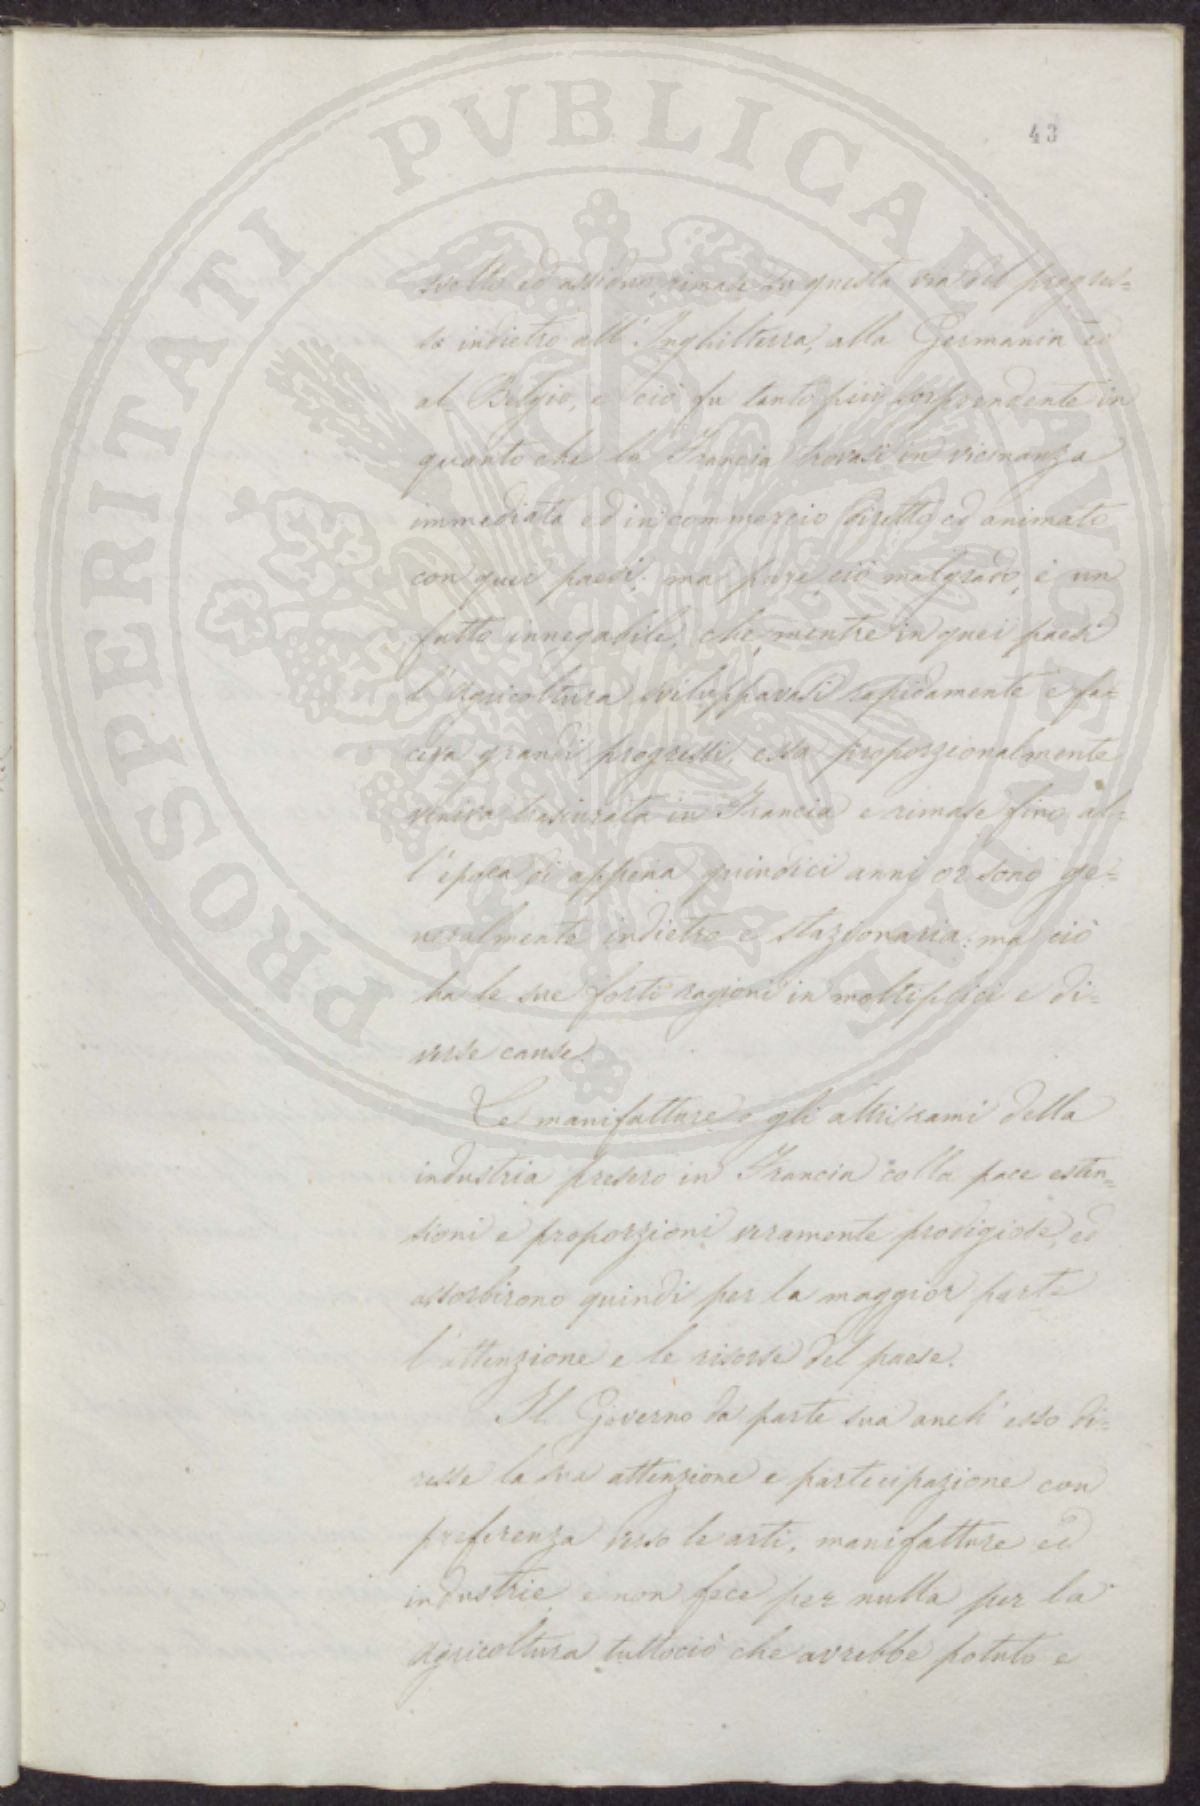 43
svelto ed assiduo, rimase su questa via del progres=
so indietro all'Inghilterra, alla Germania ed
al Belgio, e ciò fu tanto più sorprendente in
quanto che la Francia trovasi in vicinanza
immediata ed in commercio diretto ed animato
con quei paesi; ma pure ciò malgrado, è un
fatto innegabile, che mentre in quei paesi
l'agricoltura sviluppavasi rapidamente e fa=
ceva grandi progressi, essa proporzionalmente
veniva trascurata in Francia e rimase fino al=
l'epoca di appena quindici anni or sono ge=
neralmente indietro e stazionaria: ma ciò
ha le sue forti ragioni in moltiplici e di=
verse cause.
Le manifatture e gli altri rami della
industria presero in Francia colla pace esten=
sioni e proporzioni veramente prodigiose, ed
assorbirono quindi per la maggior parte
l'attenzione e le risorse del paese.
Il Governo da parte sua anch'esso di=
resse la sua attenzione e partecipazione con
preferenza verso le arti, manifatture ed
industrie e non fece per nulla per la
agricoltura tuttociò che avrebbe potuto e
PROSPERITATI PVBLICAE AVGENDAE